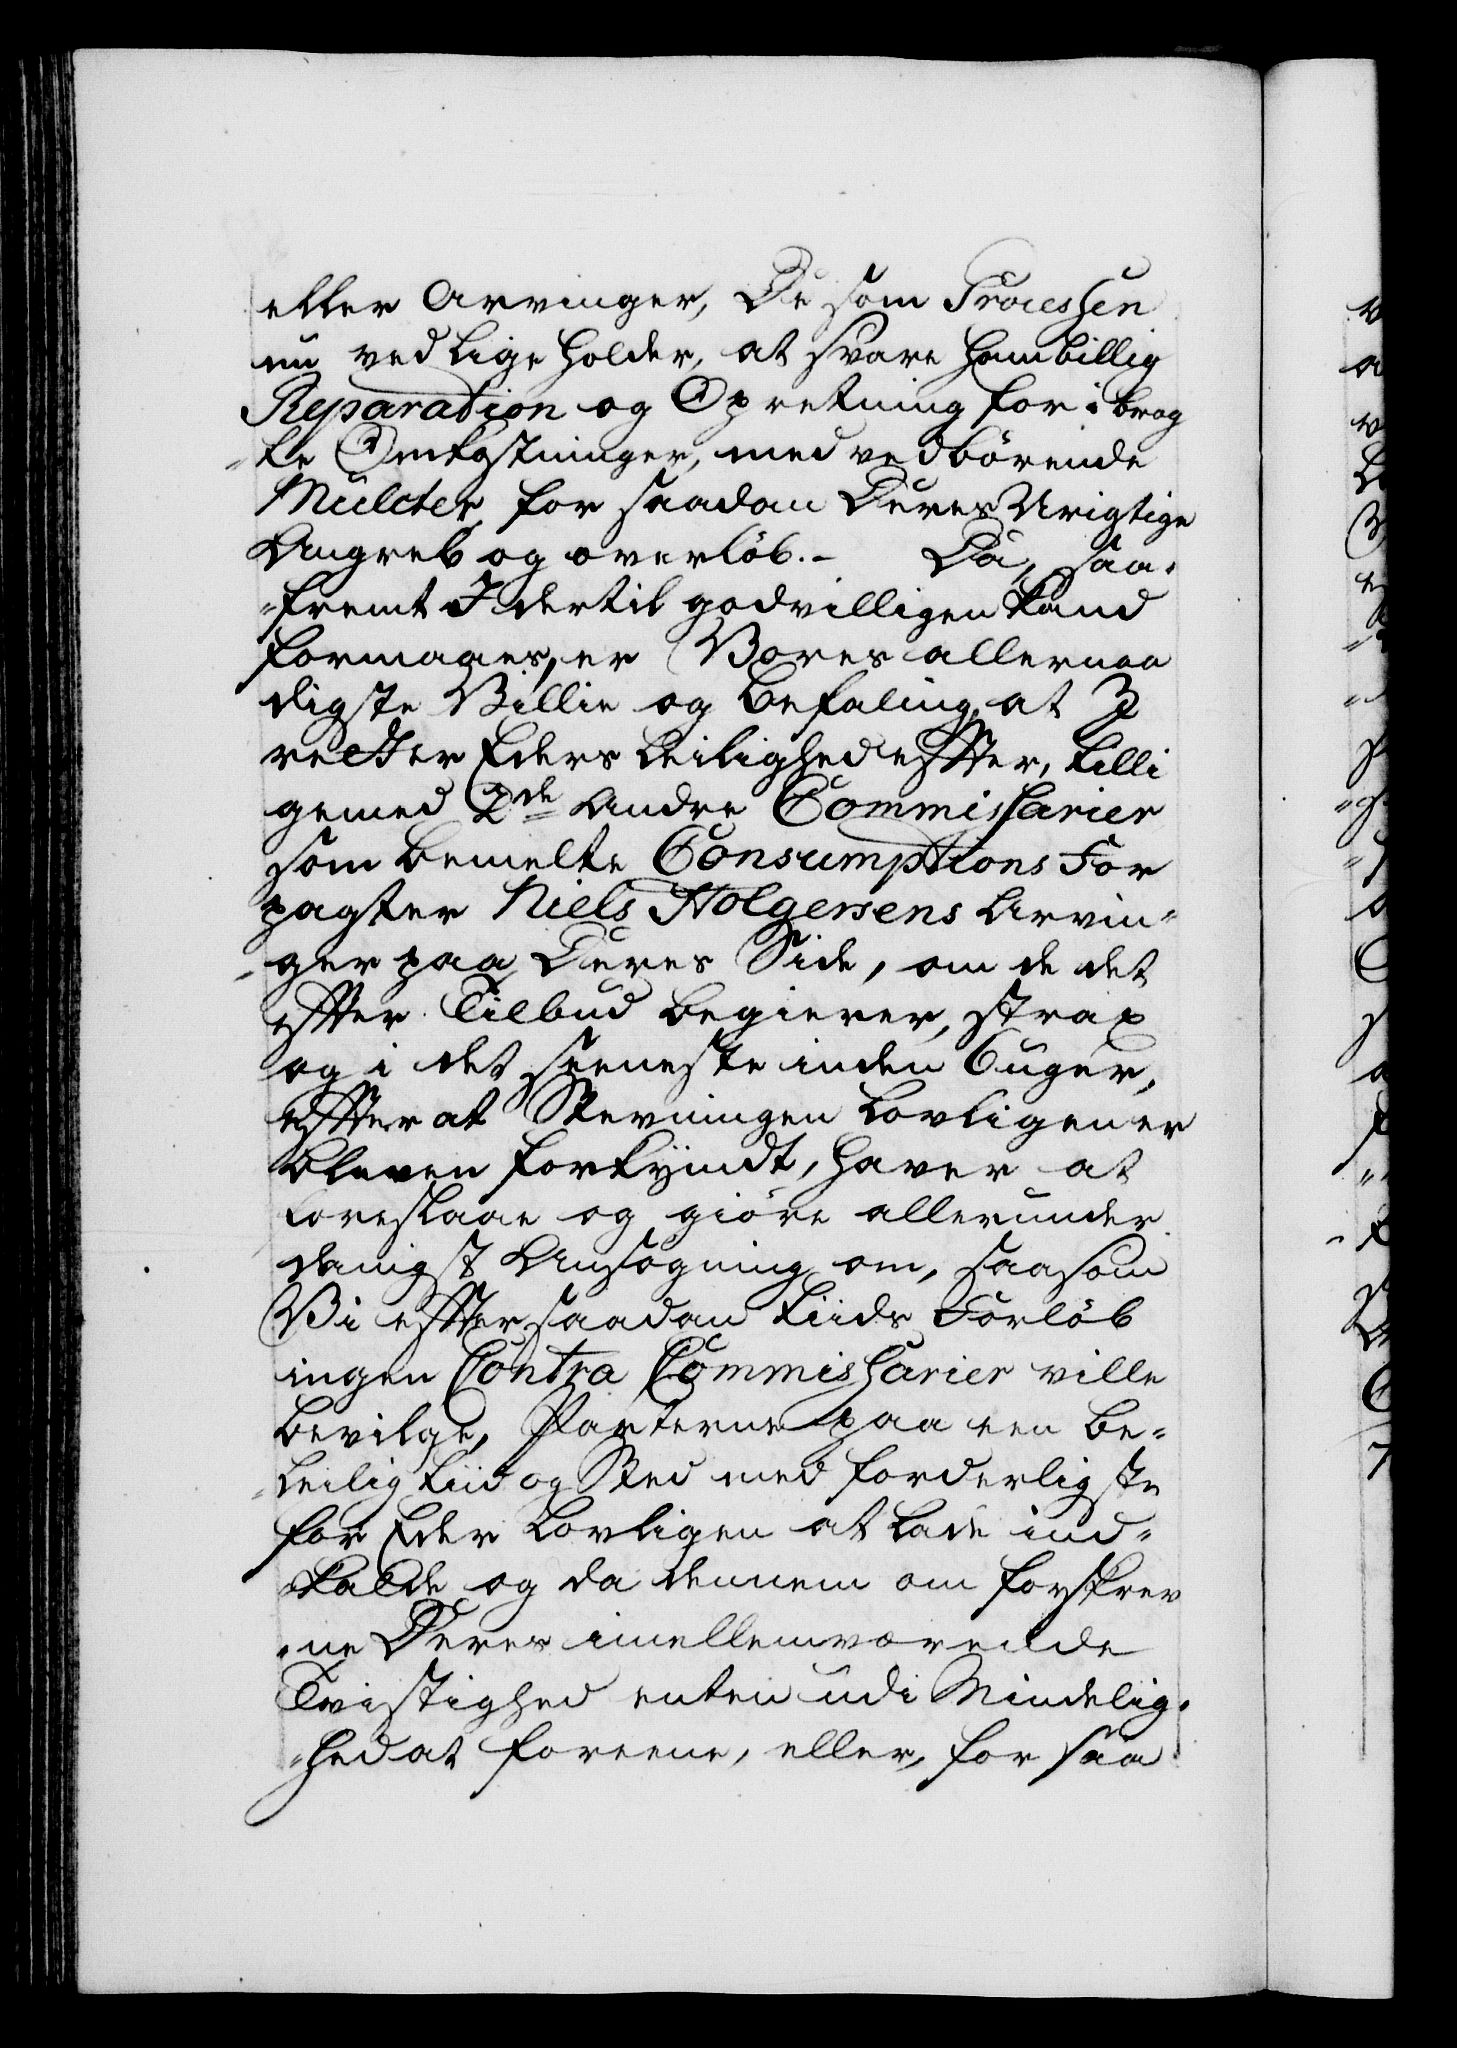 eller Arvinger, De som Processen
nu ved lige holder, at svare ham billig
Reparation og Opretning for i brag
"te Omkostninger, med vedbörende
Mulcter for saadan Deres Urigtige
Angreb og overlöb.- Da, saa-
"fremt I dertil godvilligen kand
formaaes, er Vores allernaa
digste Villie og befaling, at I
retter Eders Leilighed efter, tilli
gemed 2de andre Commissarier
som bemelte Consumptions For
pagter Niels Holgersens Arvin-
"ger paa Deres Side, om de det
efter Tilbud begierer, strax
og i det seeneste inden 6 uger,
efter at Stevningen lovligen er
bleven forkyndt, haver at
foreslaae og giöre allerunder
danigst Ansögning om, saasom
Vi efter saadan tiids Forlöb
ingen Contra Commissarier ville
bevilge, Parterne paa een be-
"leilig tiid og Sted med forderligste
for Eder lovligen at lade ind-
kalde og da dennem om forskrev
"ne Deres imellemværende
Tvistighed enten udi Mindelig-
"hed at foreene, eller, for saa